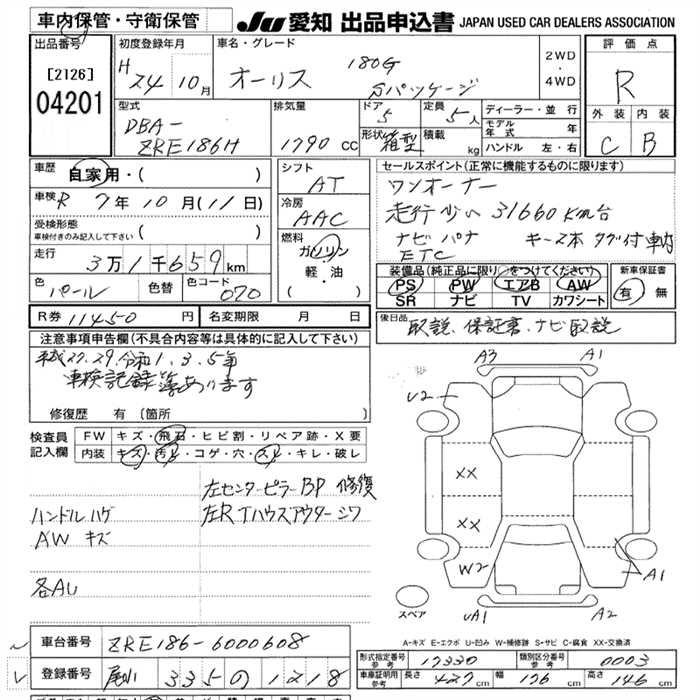 車内保管・守衛保管
JU 愛知 出品申込書 JAPAN USED CAR DEALERS ASSOCIATION
出品番号
[2126]
04201
初度登録年月
H 24年10月
車名・グレード
オーリス 180G Sパッケージ
2WD・4WD
評価点
R
外装 内装
C B
型式
DBA-ZRE186H
排気量
1790 cc
ドア
5
定員
5人
形状
箱型
積載
kg
ディーラー・並行
モデル年式 年
ハンドル 左・右
車歴
自家用・( )
車検 R 7年10月(11日)
受検形態
車検付きのみ記入して下さい ( )
走行
3万1千659km
色
パール
色替
色コード
070
シフト
AT
冷房
AAC
燃料
ガソリン
軽・油
( )
セールスポイント(正常に機能するものに限ります)
ワンオーナー
走行少い 31660Km台
ナビ バナ キー2本 タグ付車内
ETC
装備品(純正品に限り○をつけてください)
PS PW エアB AW
SR ナビ TV カワシート
新車保証書
有 無
R券 11450円
名変期限 月 日
後日品
取説、保証書、ナビ取説
注意事項申告欄(不具合内容等は具体的に記入して下さい)
平成27.29.令和1.3.5年
車検記録簿あります
修復歴 有 (箇所 )
検査員記入欄
FW キズ・飛石・ヒビ割・リペア跡・X要
内装 キズ・汚レ・コゲ・穴・スレ・キレ・破レ
左センターピラーBP 修復
左RTハウスアウターシワ
ハンドルハゲ
AW キズ
各AU
A3 A1
U2
XX
XX
W2
A1
UA1 A2
スペア
A-キズ E-エクボ U-凹み W-補修跡 S-サビ C-腐食 XX-交換済
車台番号 ZRE186-6000608
登録番号 尾小 335 の 1218
形式指定番号 参考 17330
類別区分番号 参考 0003
車庫証明用 参考 長さ 427cm 幅 176cm 高さ 146cm